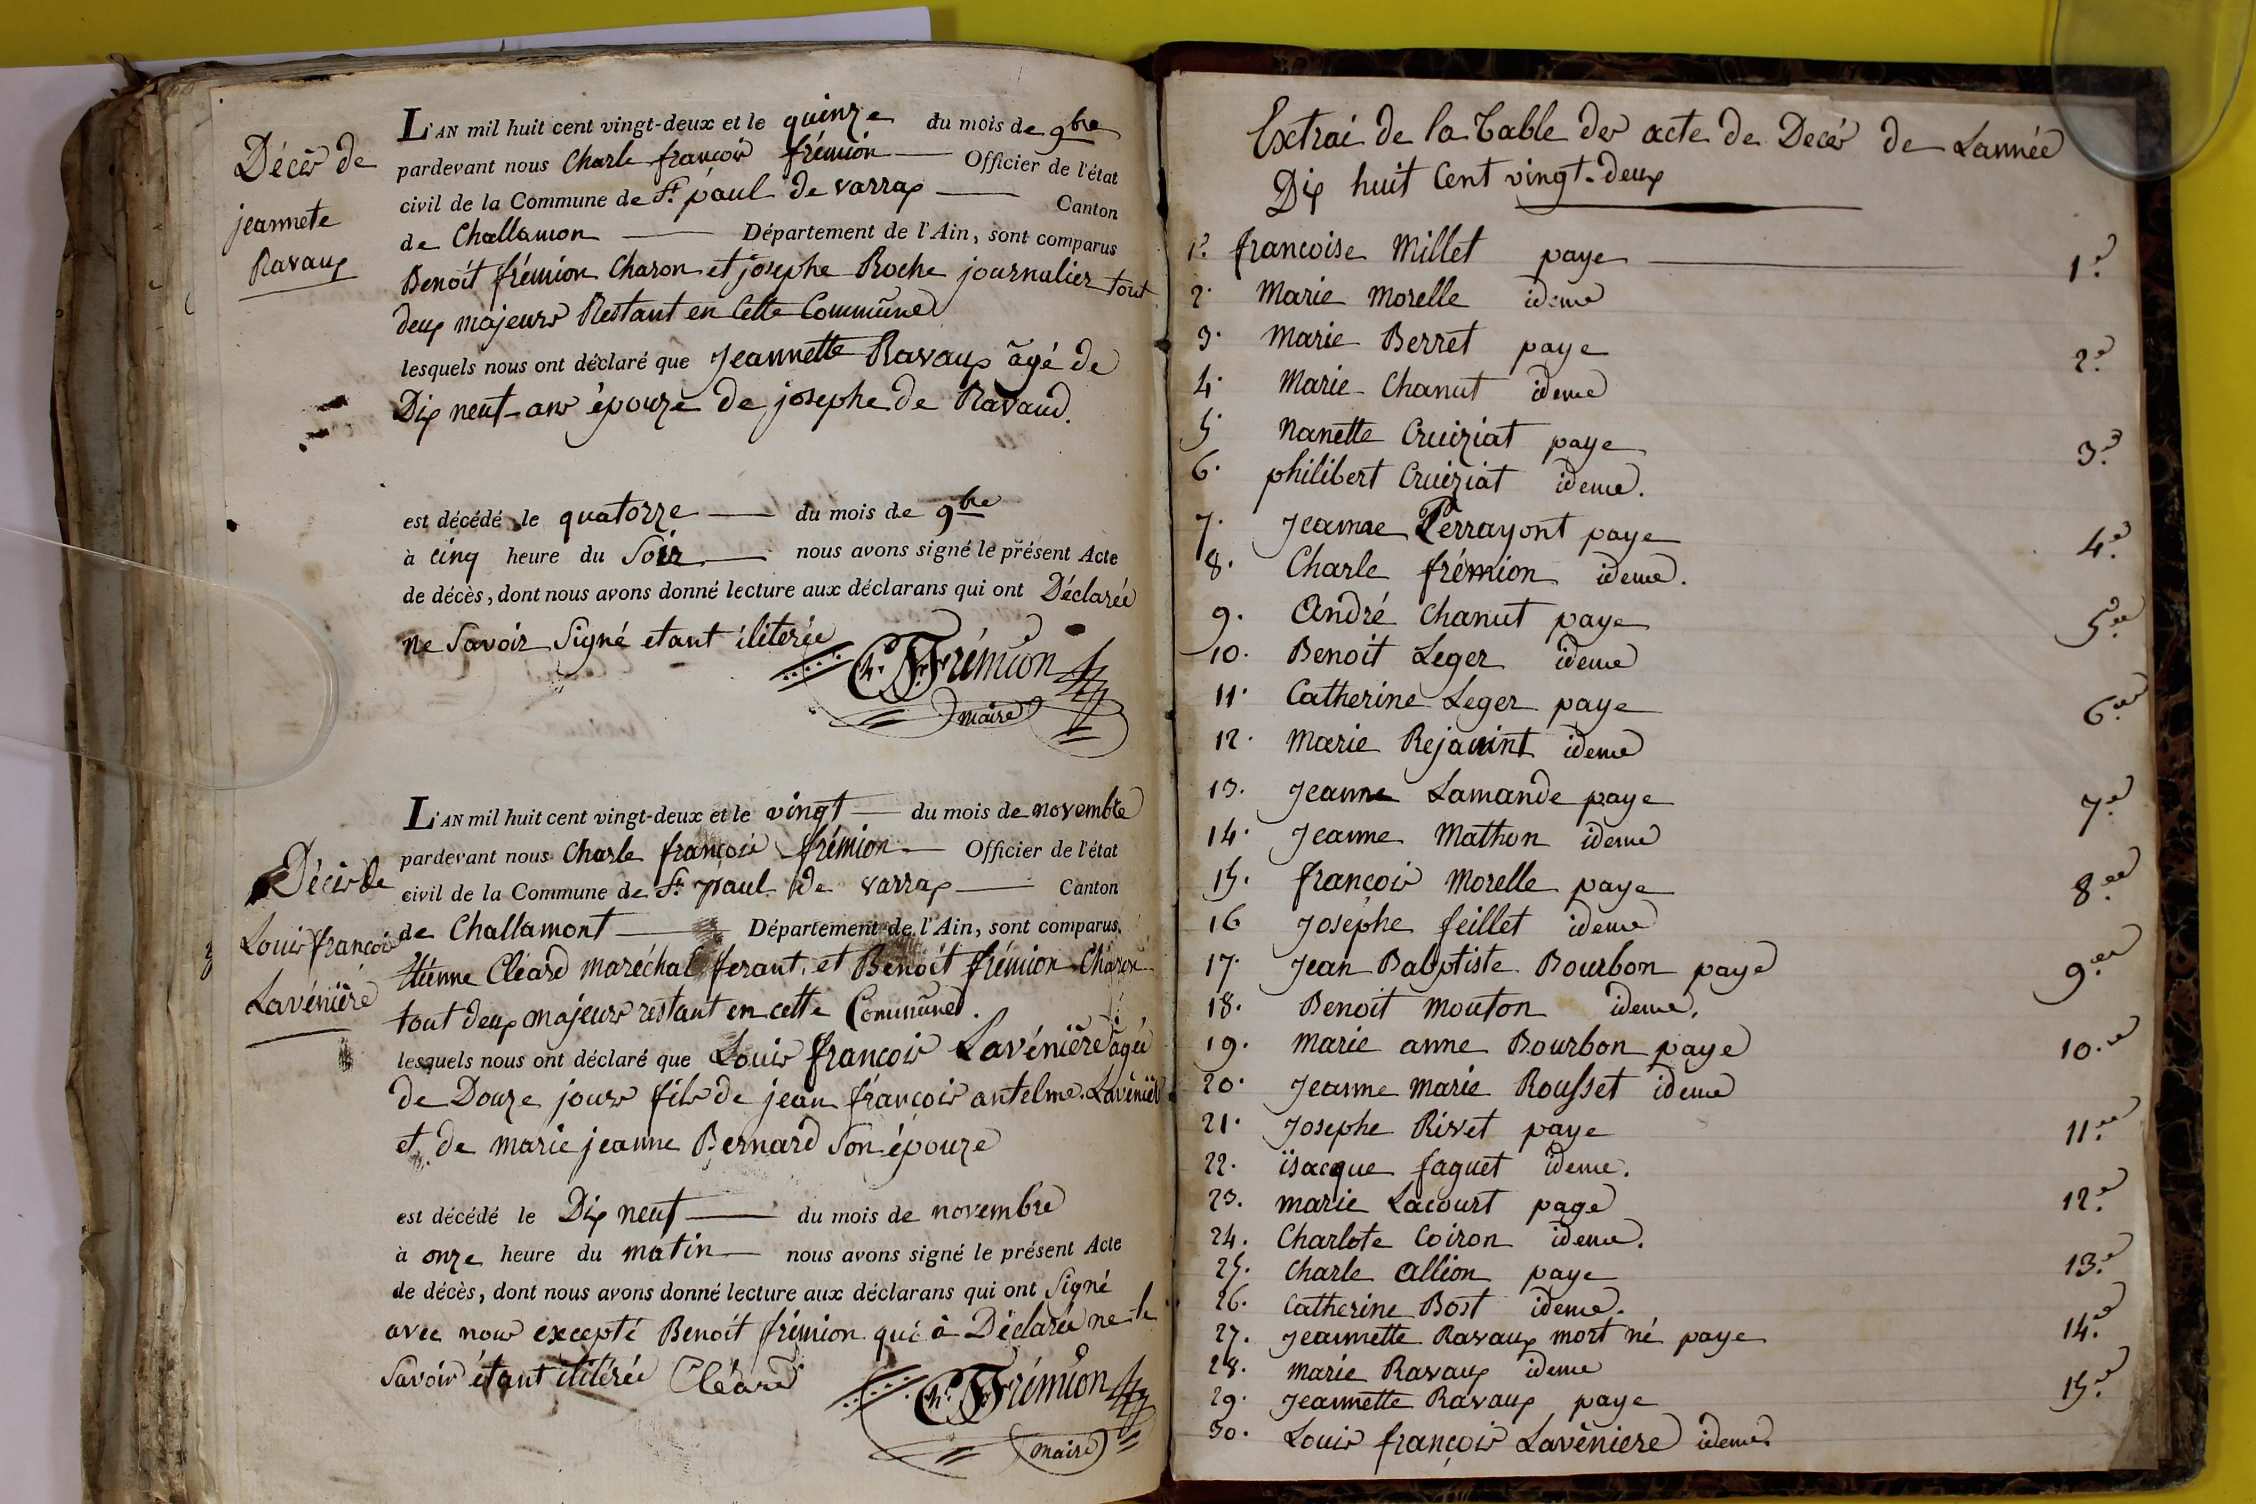 Décès de
jeannete
Ravaux
L'AN mil huit cent vingt-deux et le quinze du mois de 9bre
pardevant nous Charle françois frémion Officier de l'état
civil de la Commune de St paul de varrax Canton
de Challamon Département de l'Ain, sont comparus
Benoit frémion Charon et josephe Roche journalier tout
deux majeurs Restant en Cette Commune
lesquels nous ont déclaré que Jeannette Ravaux âgé de
Dix neuf ans épouze de josephe de Ravaud.
est décédé le quatorze du mois de 9bre
à cinq heure du Soir nous avons signé le présent Acte
de décès, dont nous avons donné lecture aux déclarans qui ont Déclarée
ne Savoir Signé etant ilitérée
Ch. F. Frémion
maire
Décès de
Louis françois
Lavénière
L'AN mil huit cent vingt-deux et le vingt du mois de novembre
pardevant nous Charle françois frémion Officier de l'état
civil de la Commune de St paul de varrax Canton
de Challamont Département de l'Ain, sont comparus
Etienne Cléard maréchal ferant et Benoit frémion Charon
tout deux majeurs restant en cette Commune.
lesquels nous ont déclaré que Louis françois Lavénière agée
de Douze jours fils de jean françois antelme Lavénière
et de marie jeanne Bernard Son épouze
est décédé le Dix neuf du mois de novembre
à onze heure du matin nous avons signé le présent Acte
de décès, dont nous avons donné lecture aux déclarans qui ont Signé
avec nous excepté Benoit frémion qui à Déclarée ne le
Savoir étant ilitérée Cléard
Ch. F. Frémion
maire
Extrai de la Table des acte de Decès de Lannée
Dix huit Cent vingt-deux
1º francoise Millet paye 1.e
2. Marie Morelle ideme
3. Marie Berret paye 2.e
4. Marie Chanut ideme
5. Nanette Cruiziat paye 3.e
6. philibert Cruiziat ideme.
7. Jeanne Perrayont paye 4.e
8. Charle frémion ideme.
9. André Chanut paye 5.ee
10. Benoit Leger ideme
11. Catherine Leger paye 6.ee
12. Marie Rejanint ideme
13. Jeanne Lamande paye 7.e
14. Jeanne Mathon ideme
15. françois Morelle paye 8.ee
16 Josephe feillet ideme
17. Jean Babptiste Bourbon paye 9.ee
18. Benoit Mouton ideme.
19. Marie anne Bourbon paye 10.ee
20. Jeanne Marie Rousset ideme
21. Josephe Rivet paye 11.ee
22. ïsacque faguet ideme.
23. marie Lacourt page 12.e
24. Charlote Coiron ideme.
25. Charle Allion paye 13.e
26. Catherine Bost ideme.
27. Jeannette Ravaux mort né paye 14.e
28. Marie Ravaux ideme
29. Jeannette Ravaux paye 15.e
30. Louis françois Lavéniere ideme.